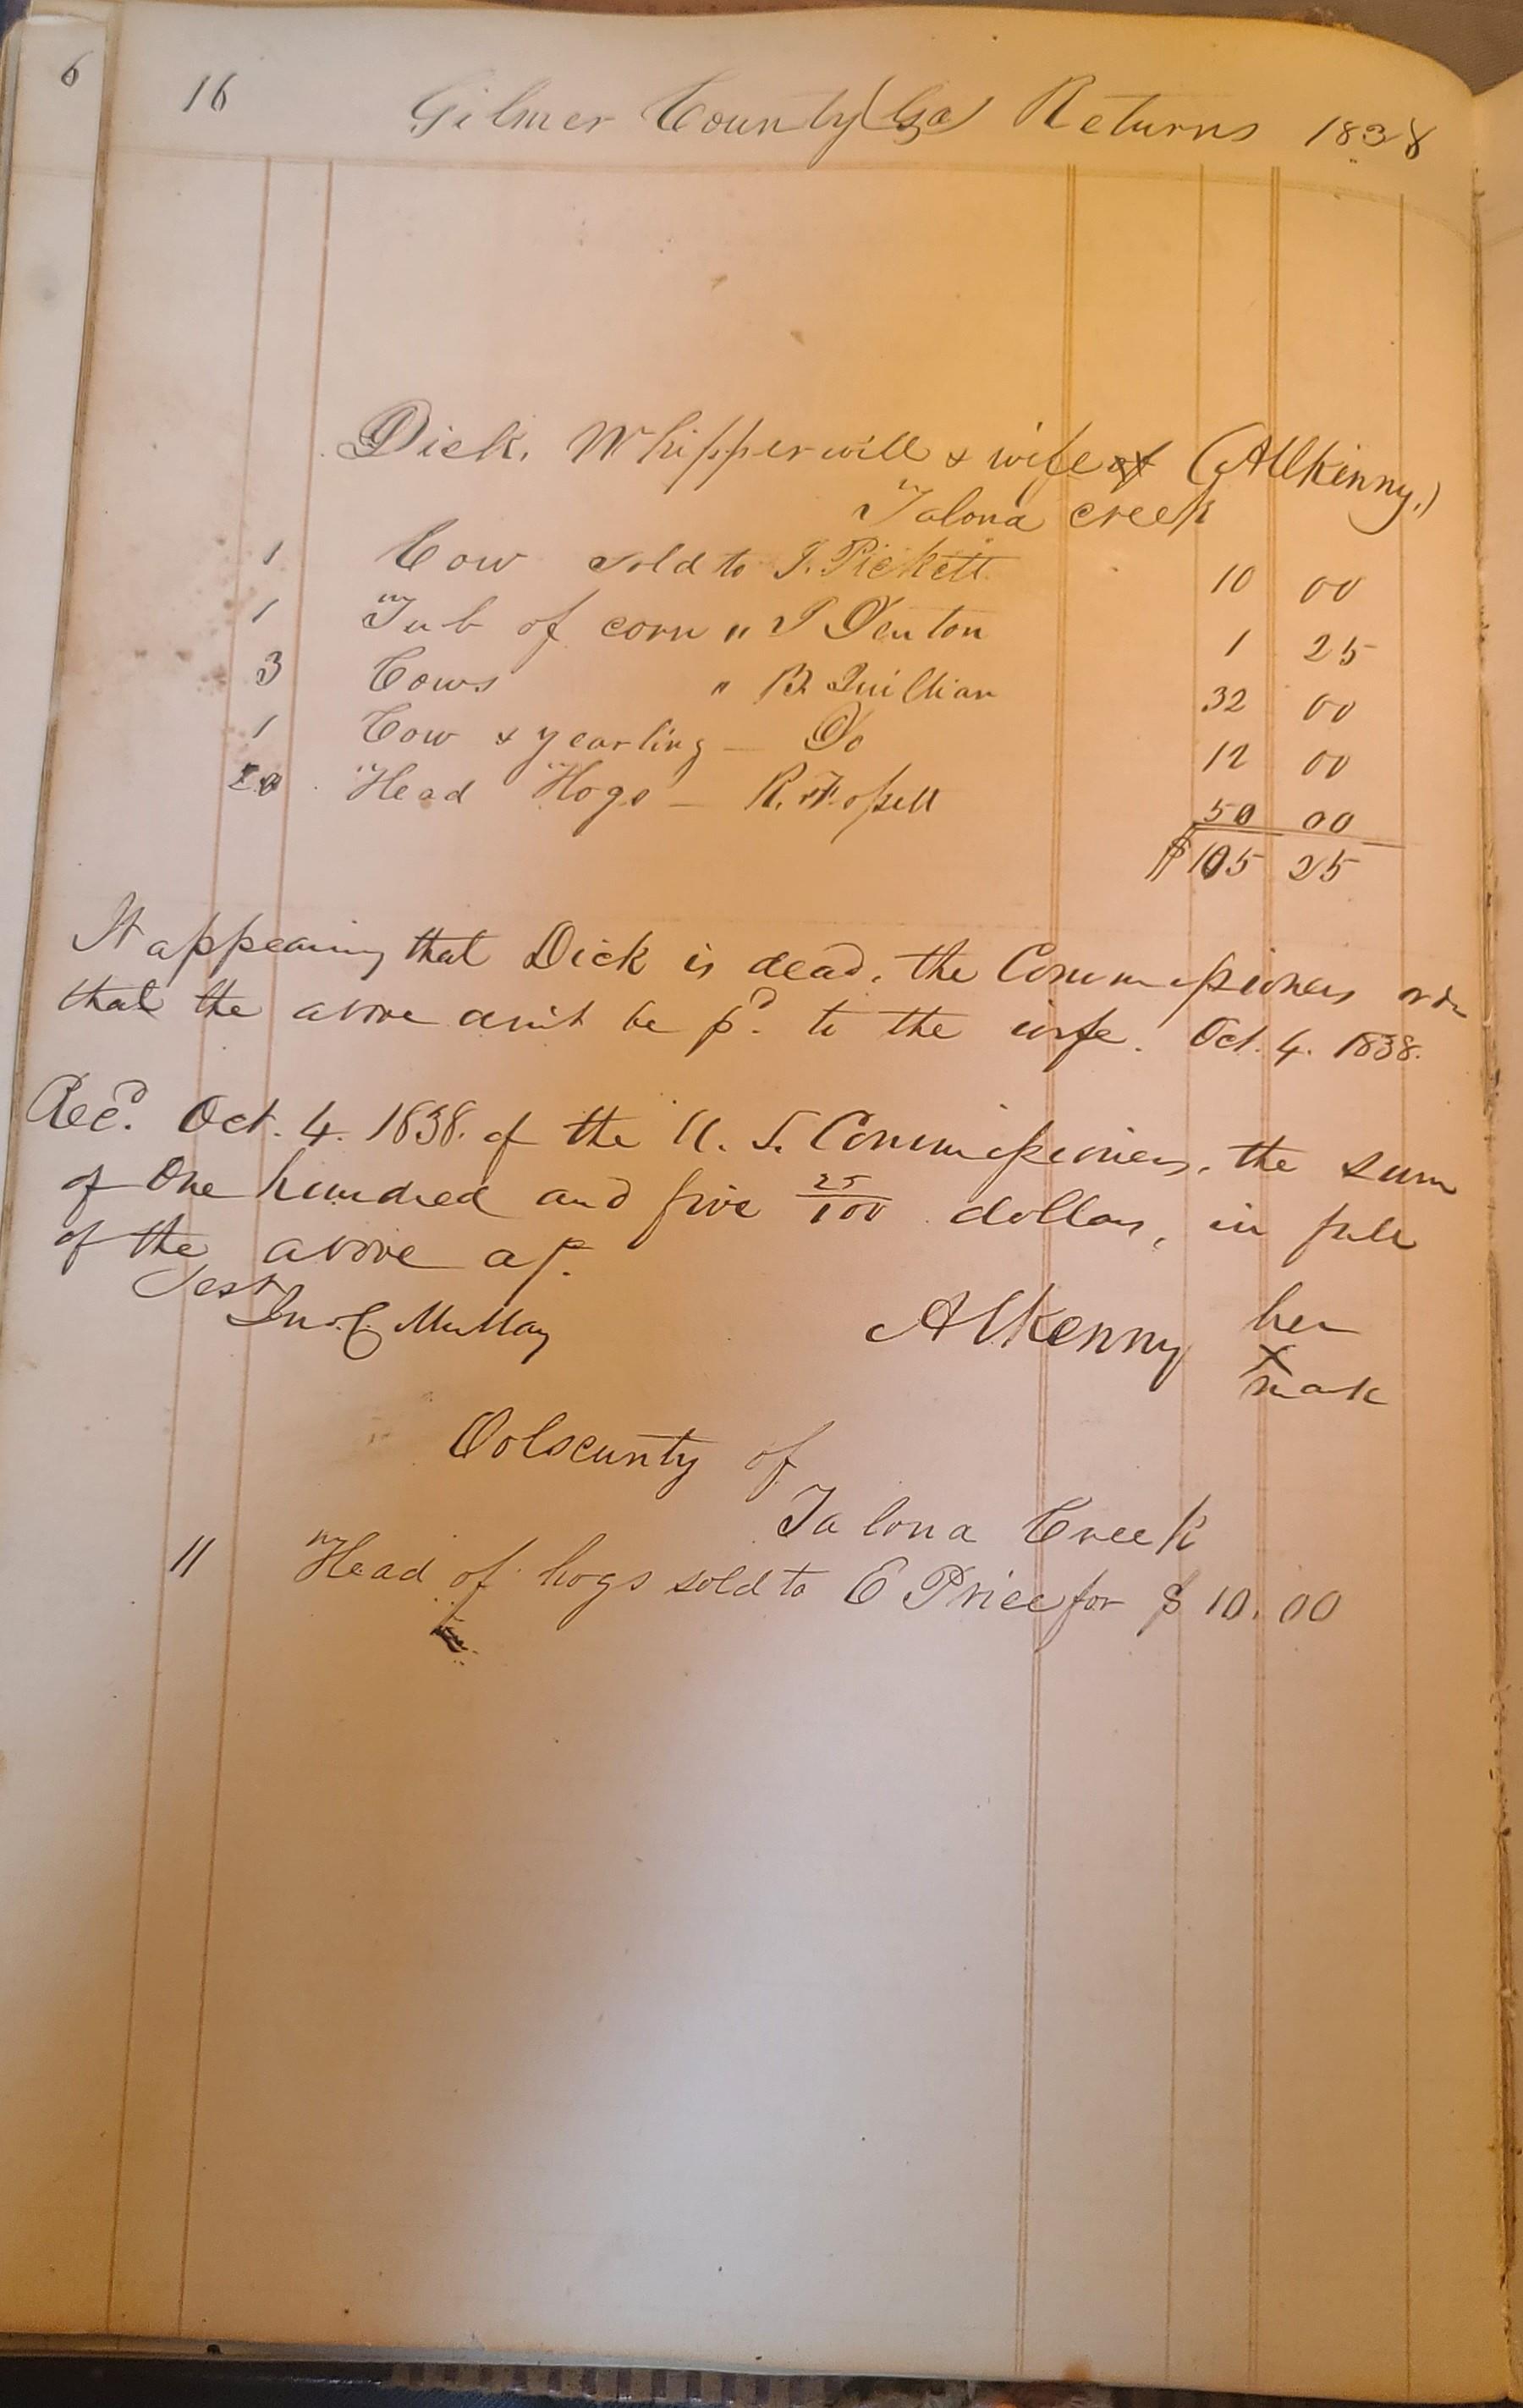 6
16 Gilmer County (Ga) Returns 1838
Dick, Whipperwill & wife (Allkinny.)
Talona creek
1 Cow sold to J. Pickett 10 00
1 Tub of corn " J Denton 1 25
3 Cows " B. Quillian 32 00
1 Cow & yearling — Do 12 00
20 Head Hogs — R. Fossett 50 00
$105 25
It appearing that Dick is dead, the Commissioners order
that the above am't be p'd. to the wife. Oct. 4. 1838.
Rec'd. Oct. 4. 1838. of the U. S. Commissioners, the sum
of One hundred and five 25/100 dollars, in full
of the above a/c.
Test
Jno. C. Mullay
Alkenny her
x
mark
Oolscunty of
Talona Creek
11 Head of hogs sold to E Price for $ 10.00